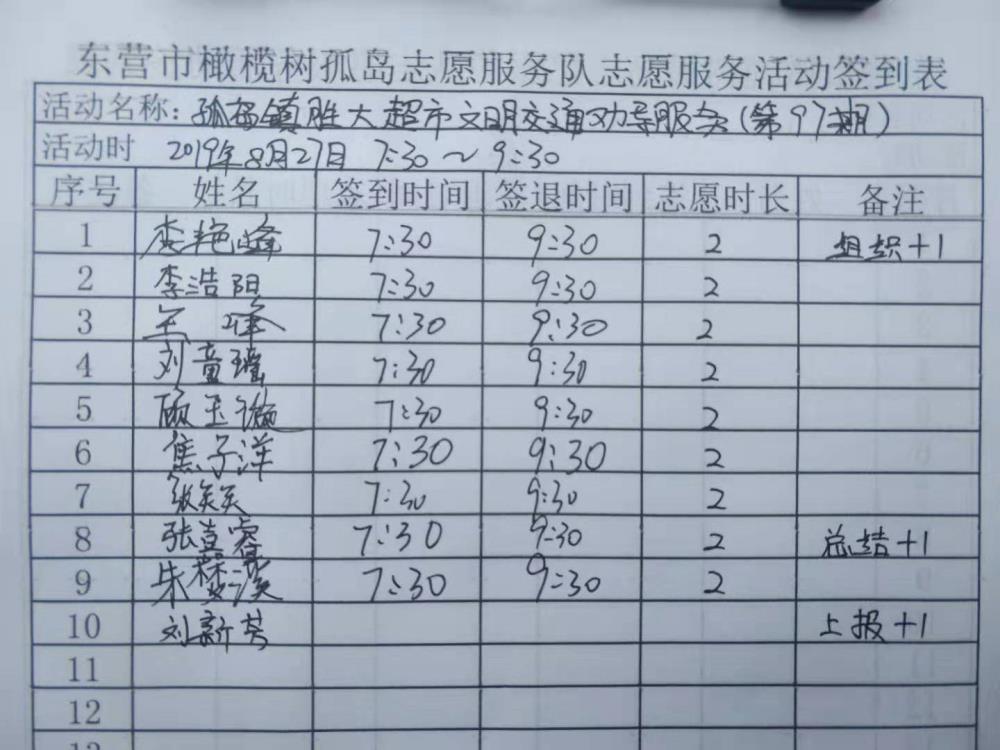 东营市橄榄树孤岛志愿服务队志愿服务活动签到表
活动名称：孤岛镇胜大超市文明交通劝导服务（第97期）
活动时 2019年8月27日 7:30～9:30
序号 姓名 签到时间 签退时间 志愿时长 备注
1 李艳峰 7:30 9:30 2 组织+1
2 李浩阳 7:30 9:30 2
3 7:30 9:30 2
4 刘童瑶 7:30 9:30 2
5 顾玉璇 7:30 9:30 2
6 焦子洋 7:30 9:30 2
7 7:30 9:30 2
8 张喜睿 7:30 9:30 2 总结+1
9 7:30 9:30 2
10 刘新英 上报+1
11
12